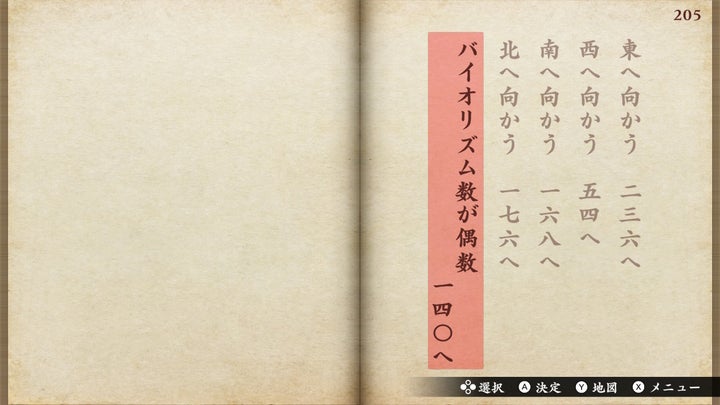 205
東へ向かう 二三六へ
西へ向かう 五四へ
南へ向かう 一六八へ
北へ向かう 一七六へ
バイオリズム数が偶数
一四〇へ
選択 A 決定 Y 地図 X メニュー